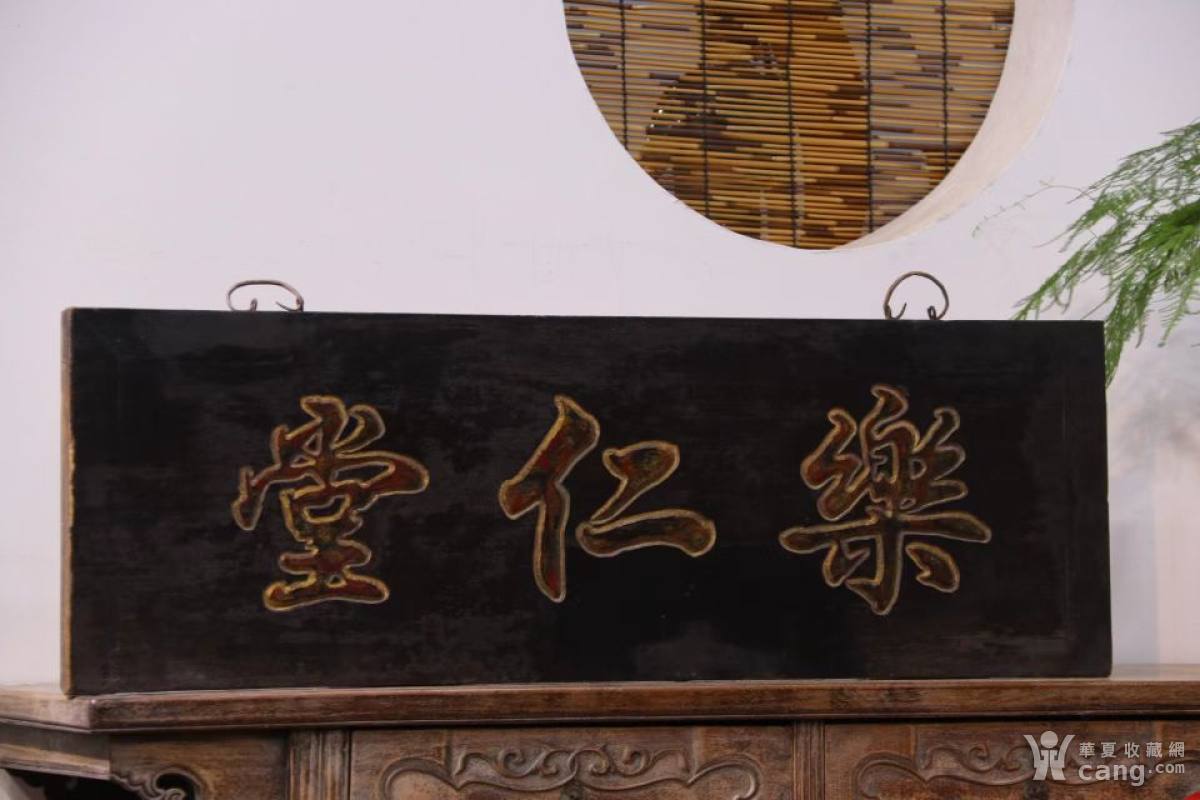 樂仁堂
華夏收藏網
cang.com